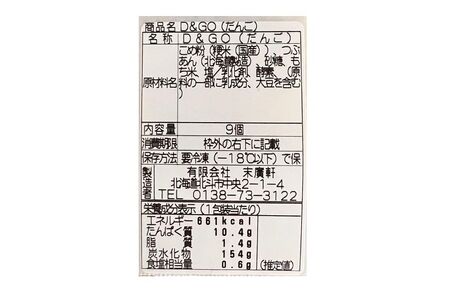 商品名 D&GO（だんご）
名称 D&GO（だんご）
こめ粉（粳米（国産））、つぶ
あん（北海道製造）、砂糖、も
ち米、塩／乳化剤、酵素、（原
原材料名 料の一部に乳成分、大豆を含む
）
内容量 9個
消費期限 枠外の右下に記載
保存方法 要冷凍（－18℃以下）で保
製造者 有限会社 末廣軒
北海道北斗市中央2-1-4
TEL 0138-73-3122
栄養成分表示（1包装当たり）
エネルギー 661kcal
たんぱく質 10.4g
脂質 1.4g
炭水化物 154g
食塩相当量 0.6g （推定値）